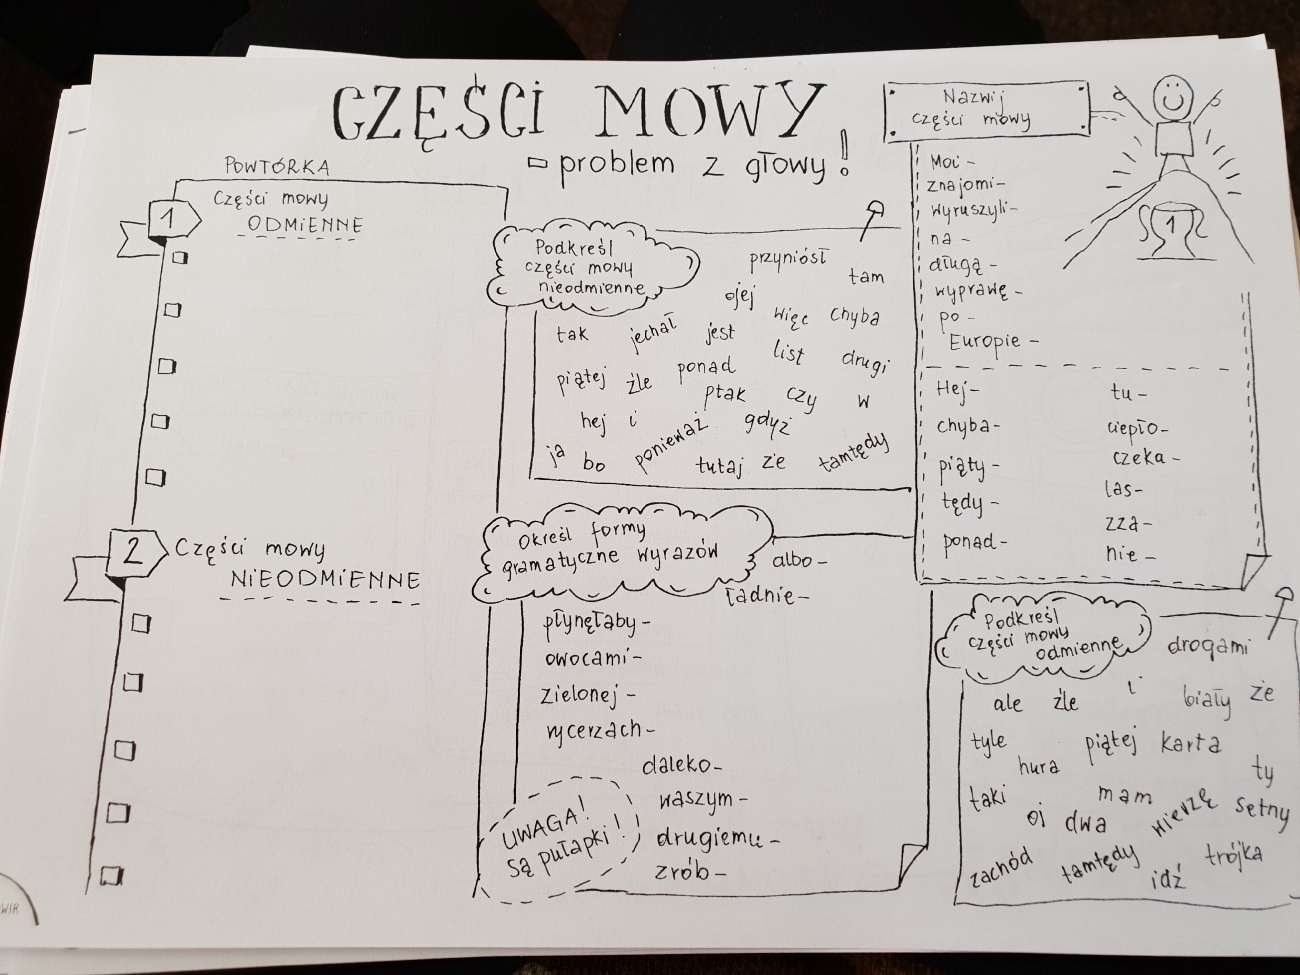 CZĘŚCI MOWY
- problem z głowy!
POWTÓRKA
1
Części mowy
ODMIENNE
2
Części mowy
NIEODMIENNE
Podkreśl
części mowy
nieodmienne
przyniósł
tam
ojej
tak jechał jest więc chyba
list drugi
piątej źle ponad
ptak czy w
hej i ponieważ gdyż
ja bo tutaj że tamtędy
Określ formy
gramatyczne wyrazów
albo -
ładnie -
płynęłaby -
owocami -
zielonej -
rycerzach -
daleko -
waszym -
drugiemu -
zrób -
UWAGA!
są pułapki!
Nazwij
części mowy
1
Moi -
znajomi -
wyruszyli -
na -
długą -
wyprawę -
po -
Europie -
Hej -
chyba -
piąty -
tędy -
ponad -
tu -
ciepło -
czeka -
las -
zza -
nie -
Podkreśl
części mowy
odmienne
drogami
ale źle i biały że
tyle piątej karta
hura ty
taki mam wierzę setny
oj dwa
zachód tamtędy trójka
idź
WIR